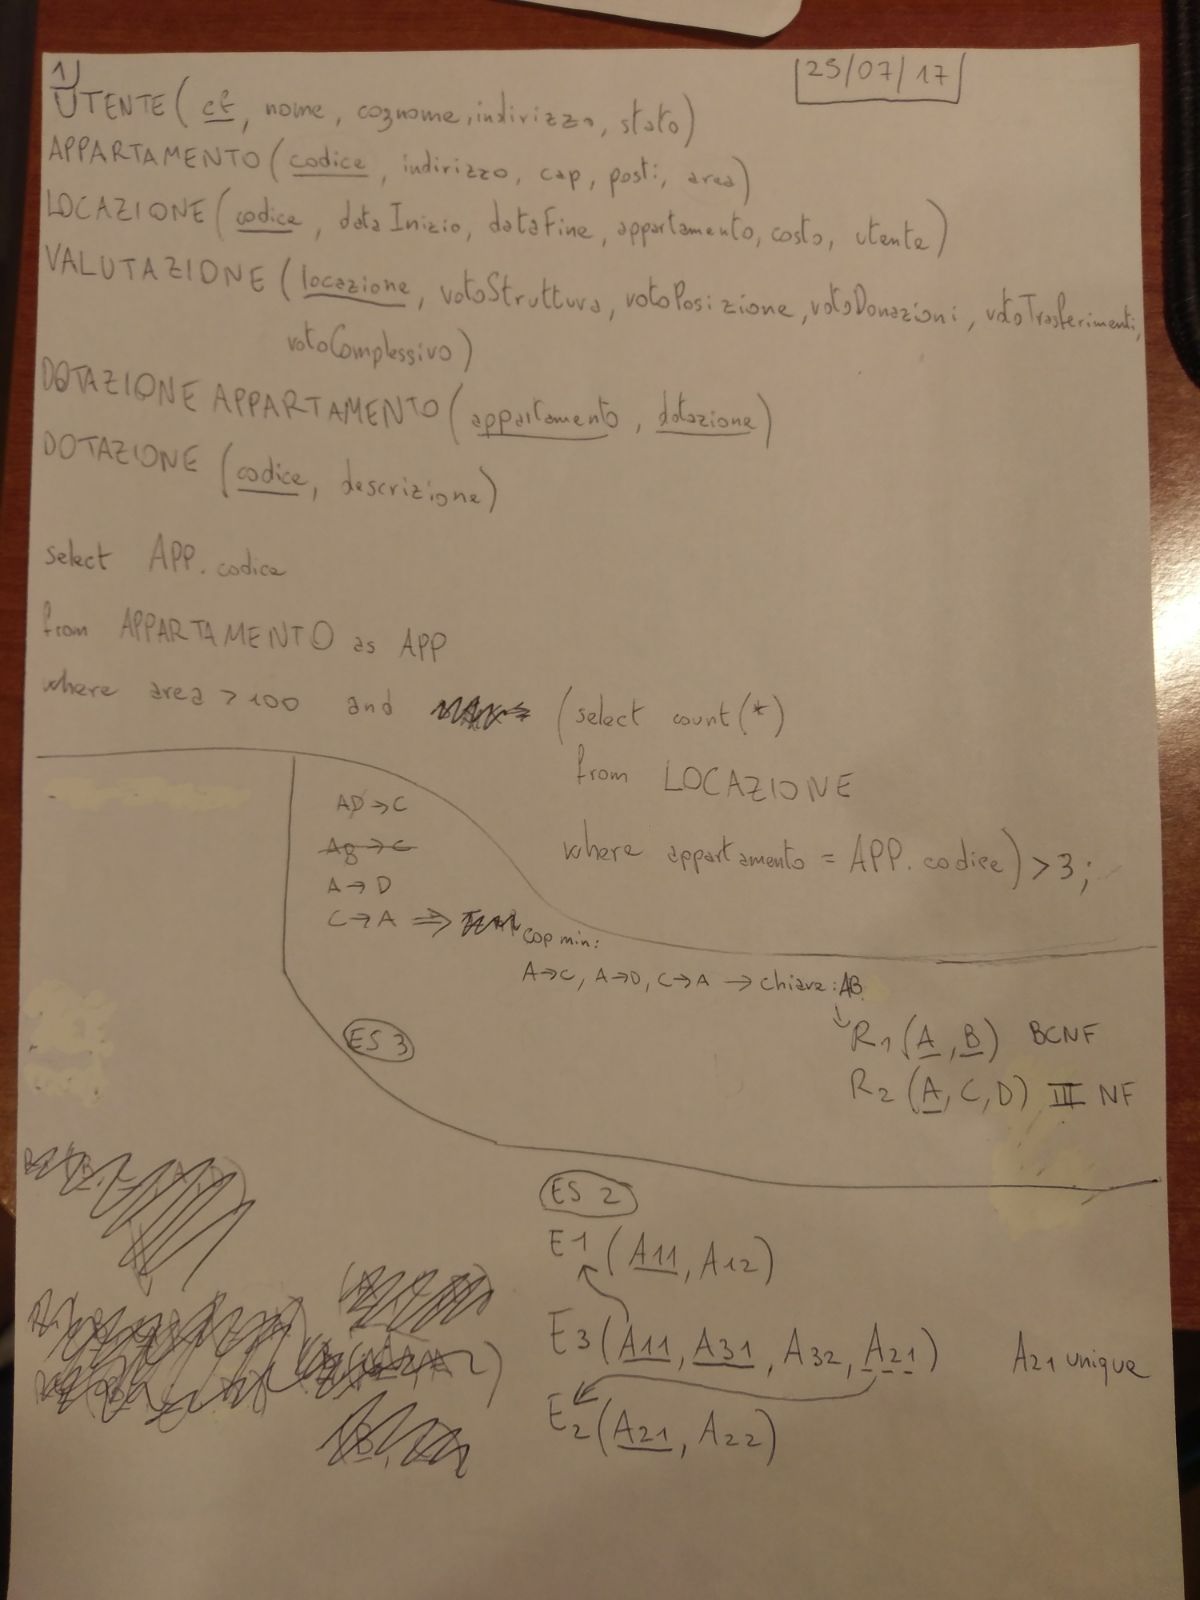 1)
25/07/17
UTENTE (cf, nome, cognome, indirizzo, stato)
APPARTAMENTO (codice, indirizzo, cap, posti, area)
LOCAZIONE (codice, dataInizio, dataFine, appartamento, costo, utente)
VALUTAZIONE (locazione, votoStruttura, votoPosizione, votoDonazioni, votoTrasferimenti,
votoComplessivo)
DOTAZIONE APPARTAMENTO (appartamento, dotazione)
DOTAZIONE (codice, descrizione)
select APP.codice
from APPARTAMENTO as APP
where area > 100 and (select count(*)
from LOCAZIONE
where appartamento = APP.codice) > 3;
AD → C
A → D
C → A ⇒ cop min:
A→C, A→D, C→A → chiave: AB
↓
R1 (A, B) BCNF
R2 (A, C, D) III NF
ES 3
ES 2
E1 (A11, A12)
E3 (A11, A31, A32, A21) A21 unique
E2 (A21, A22)